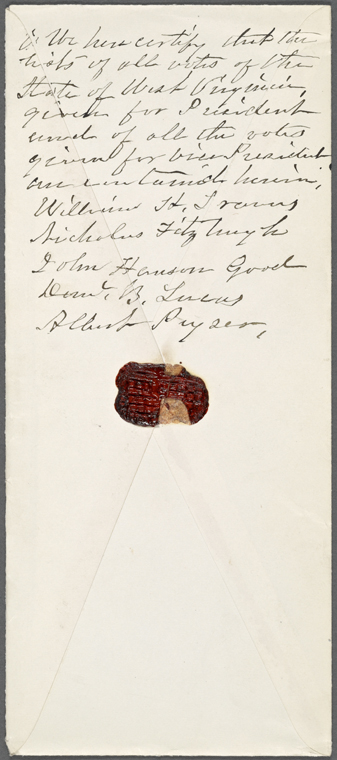 We here certify that the
lists of all votes of the
State of West Virginia,
given for President
and of all the votes
given for Vice President
are contained herein,
William H. Travers
Nicholas Fitzhugh
John Hanson Good
Danl. B. Lucas
Albert Pryzer,